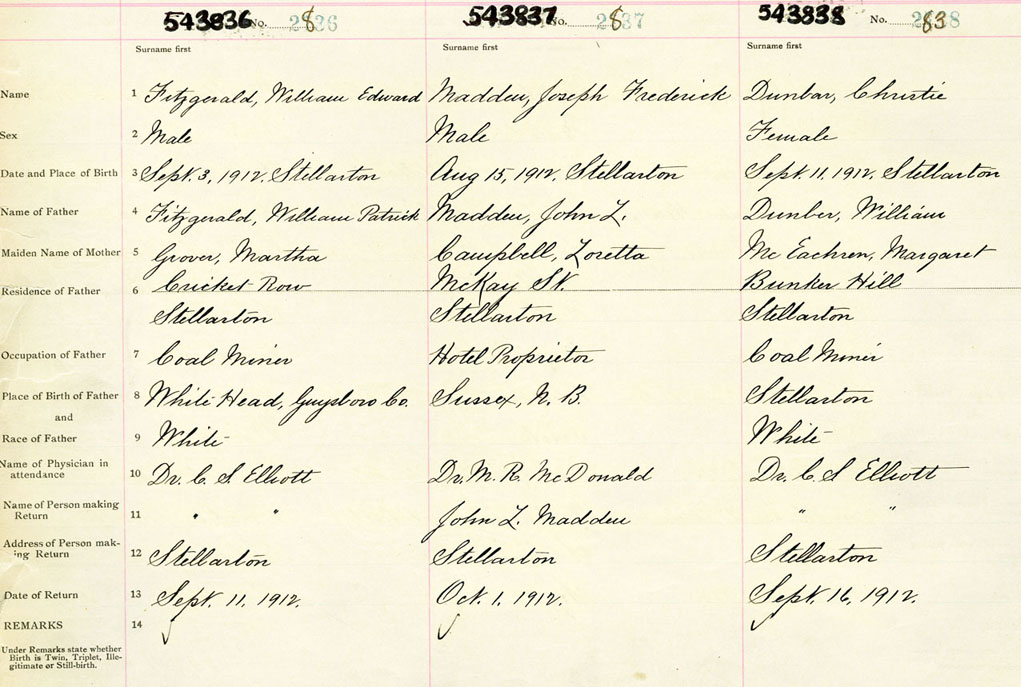 543836 No. 2836 543837 No. 2837 543838 No. 2838
Surname first Surname first Surname first
Name 1 Fitzgerald, William Edward Madden, Joseph Frederick Dunbar, Christie
Sex 2 Male Male Female
Date and Place of Birth 3 Sept. 3, 1912. Stellarton Aug 15, 1912. Stellarton Sept. 11. 1912. Stellarton
Name of Father 4 Fitzgerald, William Patrick Madden, John L. Dunbar, William
Maiden Name of Mother 5 Grover, Martha Campbell, Loretta Mc Eachren, Margaret
Residence of Father 6 Cricket Row McKay St. Bunker Hill
Stellarton Stellarton Stellarton
Occupation of Father 7 Coal Miner Hotel Proprietor Coal Miner
Place of Birth of Father 8 White Head, Guysboro Co. Sussex, N. B. Stellarton
and
Race of Father 9 White White
Name of Physician in
attendance 10 Dr. C. S Elliott Dr. M. R. McDonald Dr. C. S Elliott
Name of Person making
Return 11 " " John L. Madden " "
Address of Person mak-
ing Return 12 Stellarton Stellarton Stellarton
Date of Return 13 Sept. 11. 1912. Oct. 1. 1912. Sept. 16, 1912.
REMARKS 14
Under Remarks state whether
Birth is Twin, Triplet, Ille-
gitimate or Still-birth.